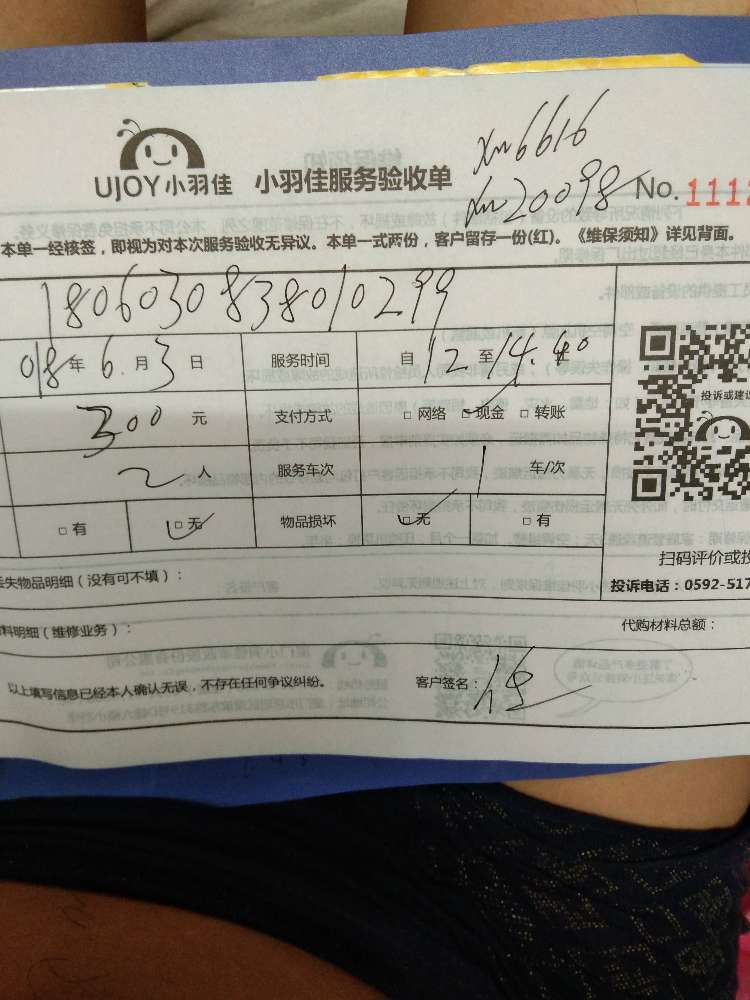 xm6616
UJOY小羽佳 小羽佳服务验收单
xm20098 No. 1112
本单一经核签，即视为对本次服务验收无异议。本单一式两份，客户留存一份(红)。《维保须知》详见背面。
1806030838010299
018年6.月3日 服务时间 自12至14.40
300元 支付方式 □ 网络 □ 现金 □ 转账
投诉或建议
2人 服务车次 1 车/次
□ 有 □ 无 物品损坏 □ 无 □ 有
扫码评价或投
丢失物品明细（没有可不填）：
投诉电话：0592-517
料明细（维修业务）： 代购材料总额：
以上填写信息已经本人确认无误，不存在任何争议纠纷。 客户签名：